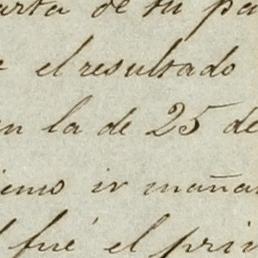 arta de su pa
el resultado
en la de 25 de
iemo ir mañan
fué el prin